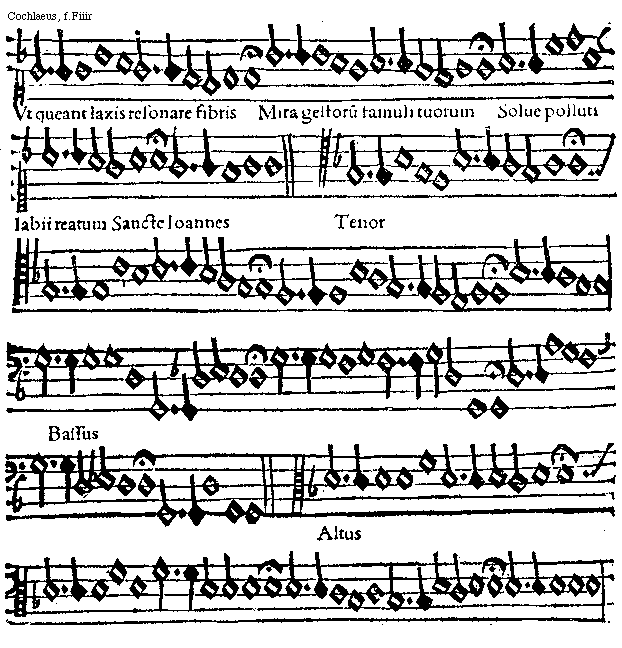 Cochlaeus, f.Fiiir
Ut queant laxis resonare fibris Mira gestorũ famuli tuorum Solue polluti
labii reatum Sancte Ioannes Tenor
Bassus
Altus